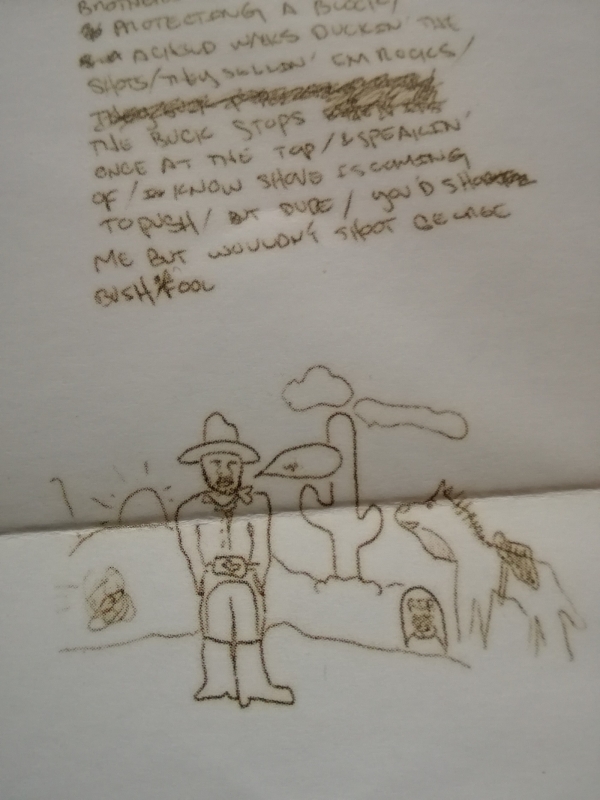 PROTECTING A BLOCK/
A CHILD WALKS DUCKIN' THE
SHOTS/THEY SELLIN' EM ROCKS/
THE BUCK STOPS
ONCE AT THE TOP/&SPEAKIN'
OF/KNOW SHOVE IS COMING
TO PUSH/BUT DUDE/YOU'D SHOOT
ME BUT WOULDN'T SHOOT GEORGE
BUSH/FOOL